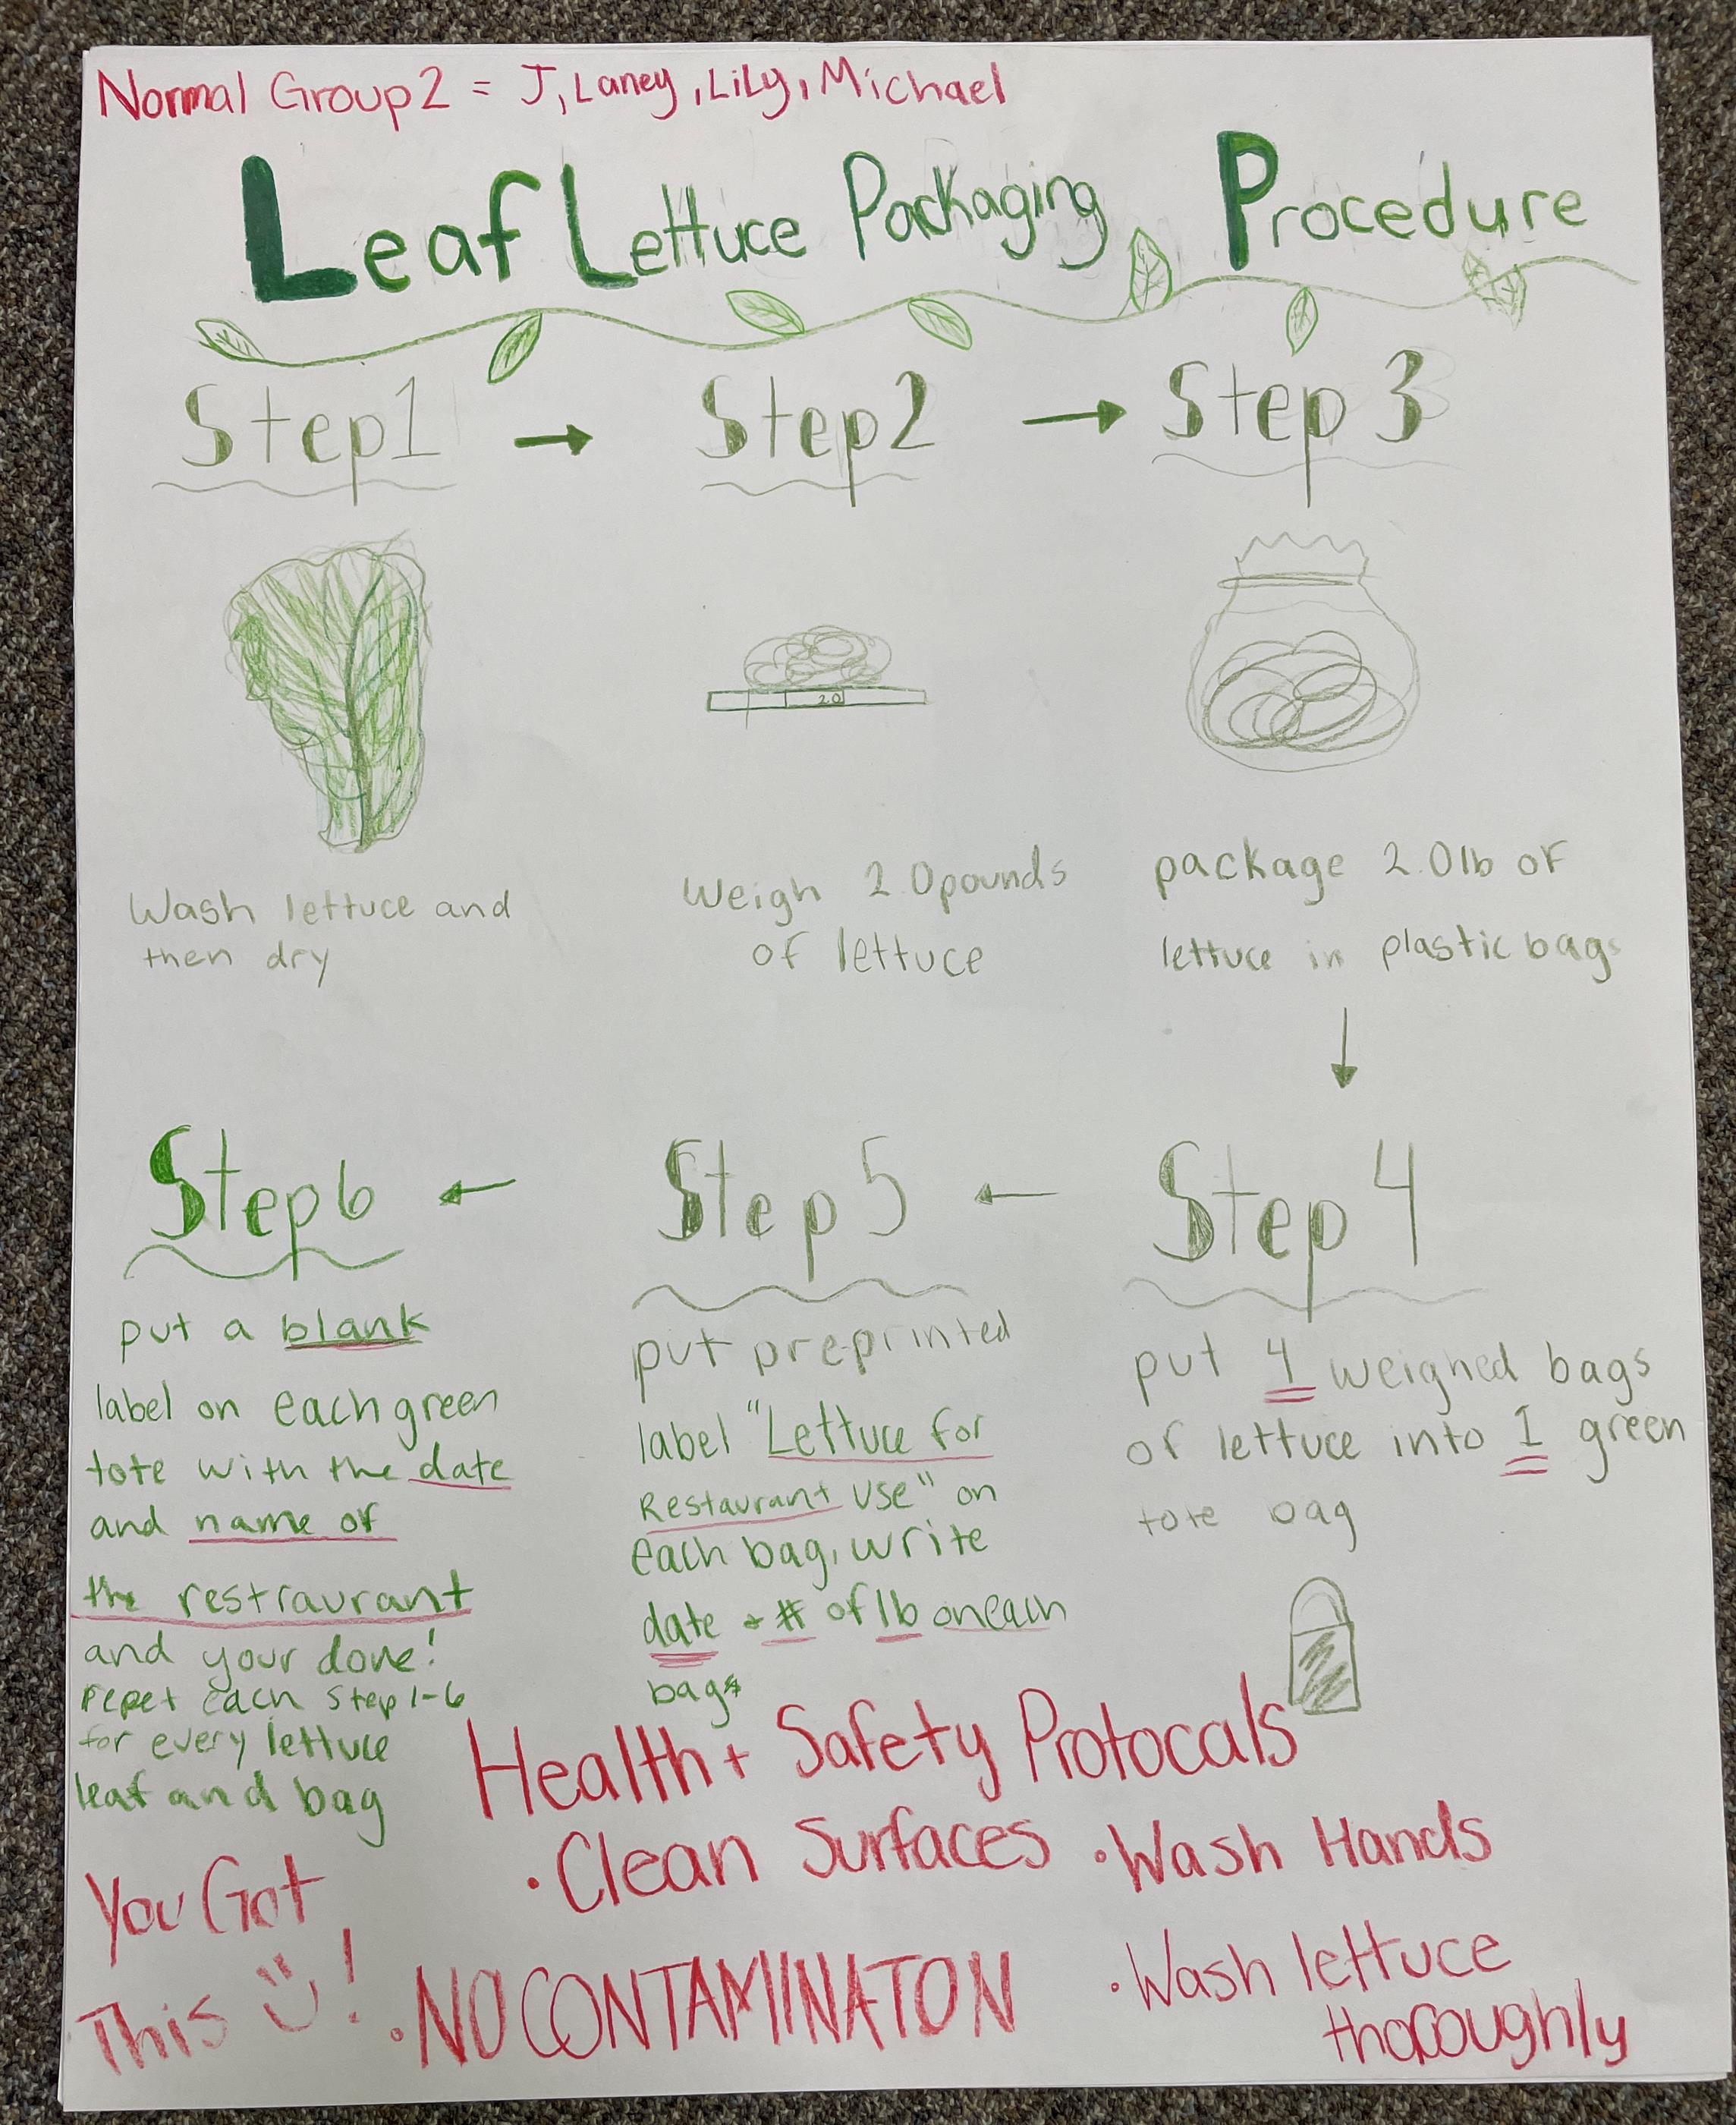 Normal Group 2 = J, Laney, Lily, Michael
Leaf Lettuce Packaging Procedure
Step 1 → Step 2 → Step 3
2.0
Wash lettuce and
then dry
Weigh 2.0 pounds
of lettuce
package 2.0 lb of
lettuce in plastic bags
↓
Step 4
put 4 weighed bags
of lettuce into 1 green
tote bag
← Step 5
put preprinted
label "Lettuce for
Restaurant Use" on
each bag, write
date + # of lb on each
bags
← Step 6
put a blank
label on each green
tote with the date
and name of
the restraurant
and your done!
repet each step 1-6
for every lettuce
leaf and bag
Health + Safety Protocals
• Clean Surfaces • Wash Hands
• NO CONTAMINATON • Wash lettuce
thoroughly
You Got
This !